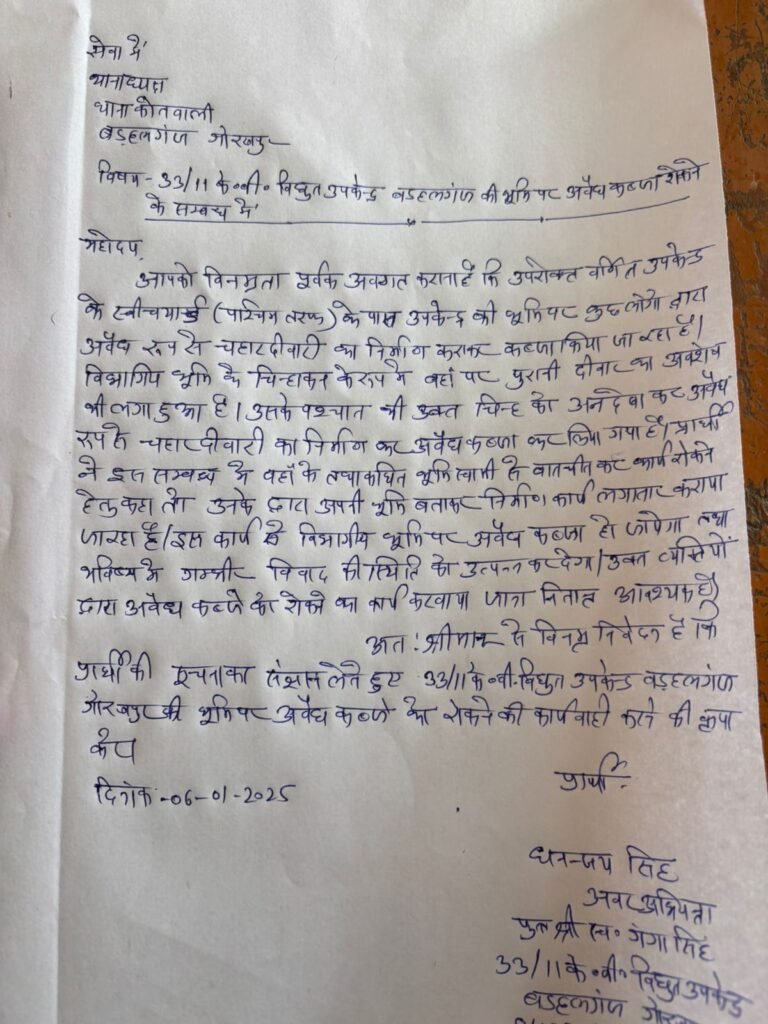 सेवा में
थानाध्यक्ष
थाना कोतवाली
बड़हलगंज गोरखपुर
विषय - 33/11 के०वी० विद्युत उपकेन्द्र बड़हलगंज की भूमि पर अवैध कब्जा रोकने
के सम्बन्ध में
महोदय,
आपको विनम्रता पूर्वक अवगत कराना है कि उपरोक्त वर्णित उपकेन्द्र
के स्वीचयार्ड (पश्चिम तरफ) के पास उपकेन्द्र की भूमि पर कुछ लोगों द्वारा
अवैध रूप से चहारदीवारी का निर्माण कराकर कब्जा किया जा रहा है।
विभागीय भूमि के चिन्हाकन के रूप में वहां पर पुरानी दीवार का अवशेष
भी लगा हुआ है। उसके पश्चात भी उक्त चिन्ह को अनदेखा कर अवैध
रूप से चहारदीवारी का निर्माण कर अवैध कब्जा कर लिया गया है। प्रार्थी
ने इस सम्बन्ध में वहाँ के तथाकथित भूमि स्वामी से बातचीत कर कार्य रोकने
हेतु कहा तो उनके द्वारा अपनी भूमि बताकर निर्माण कार्य लगातार कराया
जा रहा है। इस कार्य से विभागीय भूमि पर अवैध कब्जा हो जायेगा तथा
भविष्य में गम्भीर विवाद की स्थिति को उत्पन्न कर देगा। उक्त व्यक्तियों
द्वारा अवैध कब्जे को रोकने का कार्य करवाया जाना नितान्त आवश्यक है।
अत: श्रीमान से विनम्र निवेदन है कि
प्रार्थी की सूचना का संज्ञान लेते हुए 33/11 के०वी० विद्युत उपकेन्द्र बड़हलगंज
गोरखपुर की भूमि पर अवैध कब्जे को रोकने की कार्यवाही करने की कृपा
करें
दिनांक -06-01-2025
प्रार्थी:
धनन्जय सिंह
अवर अभियन्ता
पुत्र श्री स्व० गंगा सिंह
33/11 के०वी० विद्युत उपकेन्द्र
बड़हलगंज गोरखपुर